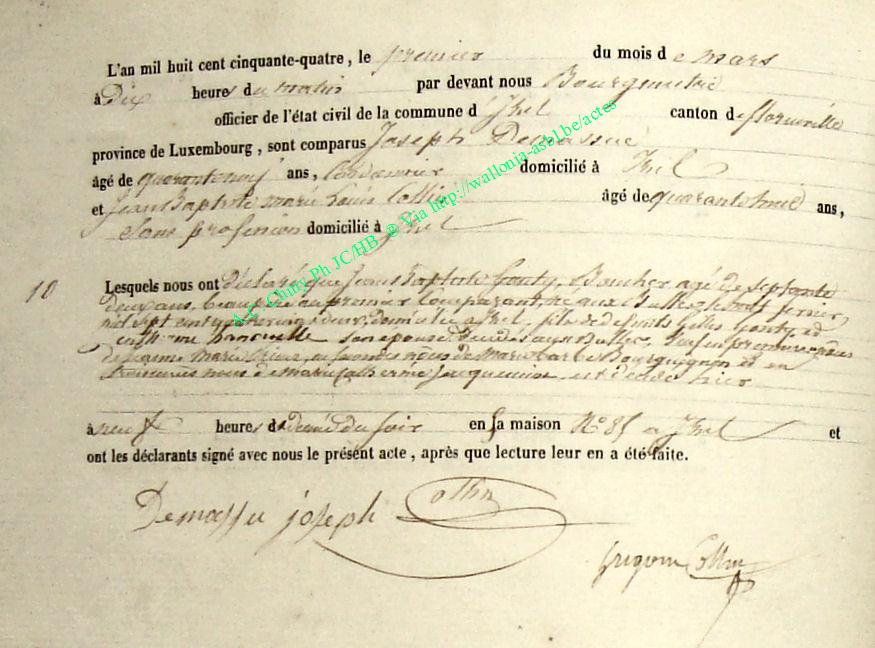 L'an mil huit cent cinquante-quatre, le premier du mois de mars
à Dix heures du matin par devant nous Bourgmestre
officier de l'état civil de la commune d'Izel canton de florenville
province de Luxembourg, sont comparus Joseph Demasſue
âgé de quaranteneuf ans, Cordonnier domicilié à Izel
et Jean Baptiste marie Louis Collin âgé de quarantehuit ans,
Sans profession domicilié à Izel
10 Lesquels nous ont déclaré que Jean Baptiste Gonty, Boucher agé de septante
deux ans, beau père au premier Comparant, né aux Bulles le huit fevrier
mil sept cent quatre vingt deux, domicilié à Izel, fils de défunts Gilles Gonty et
son epouse décédés aux Bulles, veuf en premieres nôces
de marie en secondes nôces de marie barbe Bourguignon et en
troisiemes noces de marie Catherine Jacquemin est décédé hier
à neuf heures et demie du soir en sa maison N° 85 a Izel et
ont les déclarants signé avec nous le présent acte, après que lecture leur en a été faite.
Demassu joseph Collin
Collin
A.C. Chiny Ph JC/HB @ Via http://wallonia-asbl.be/actes